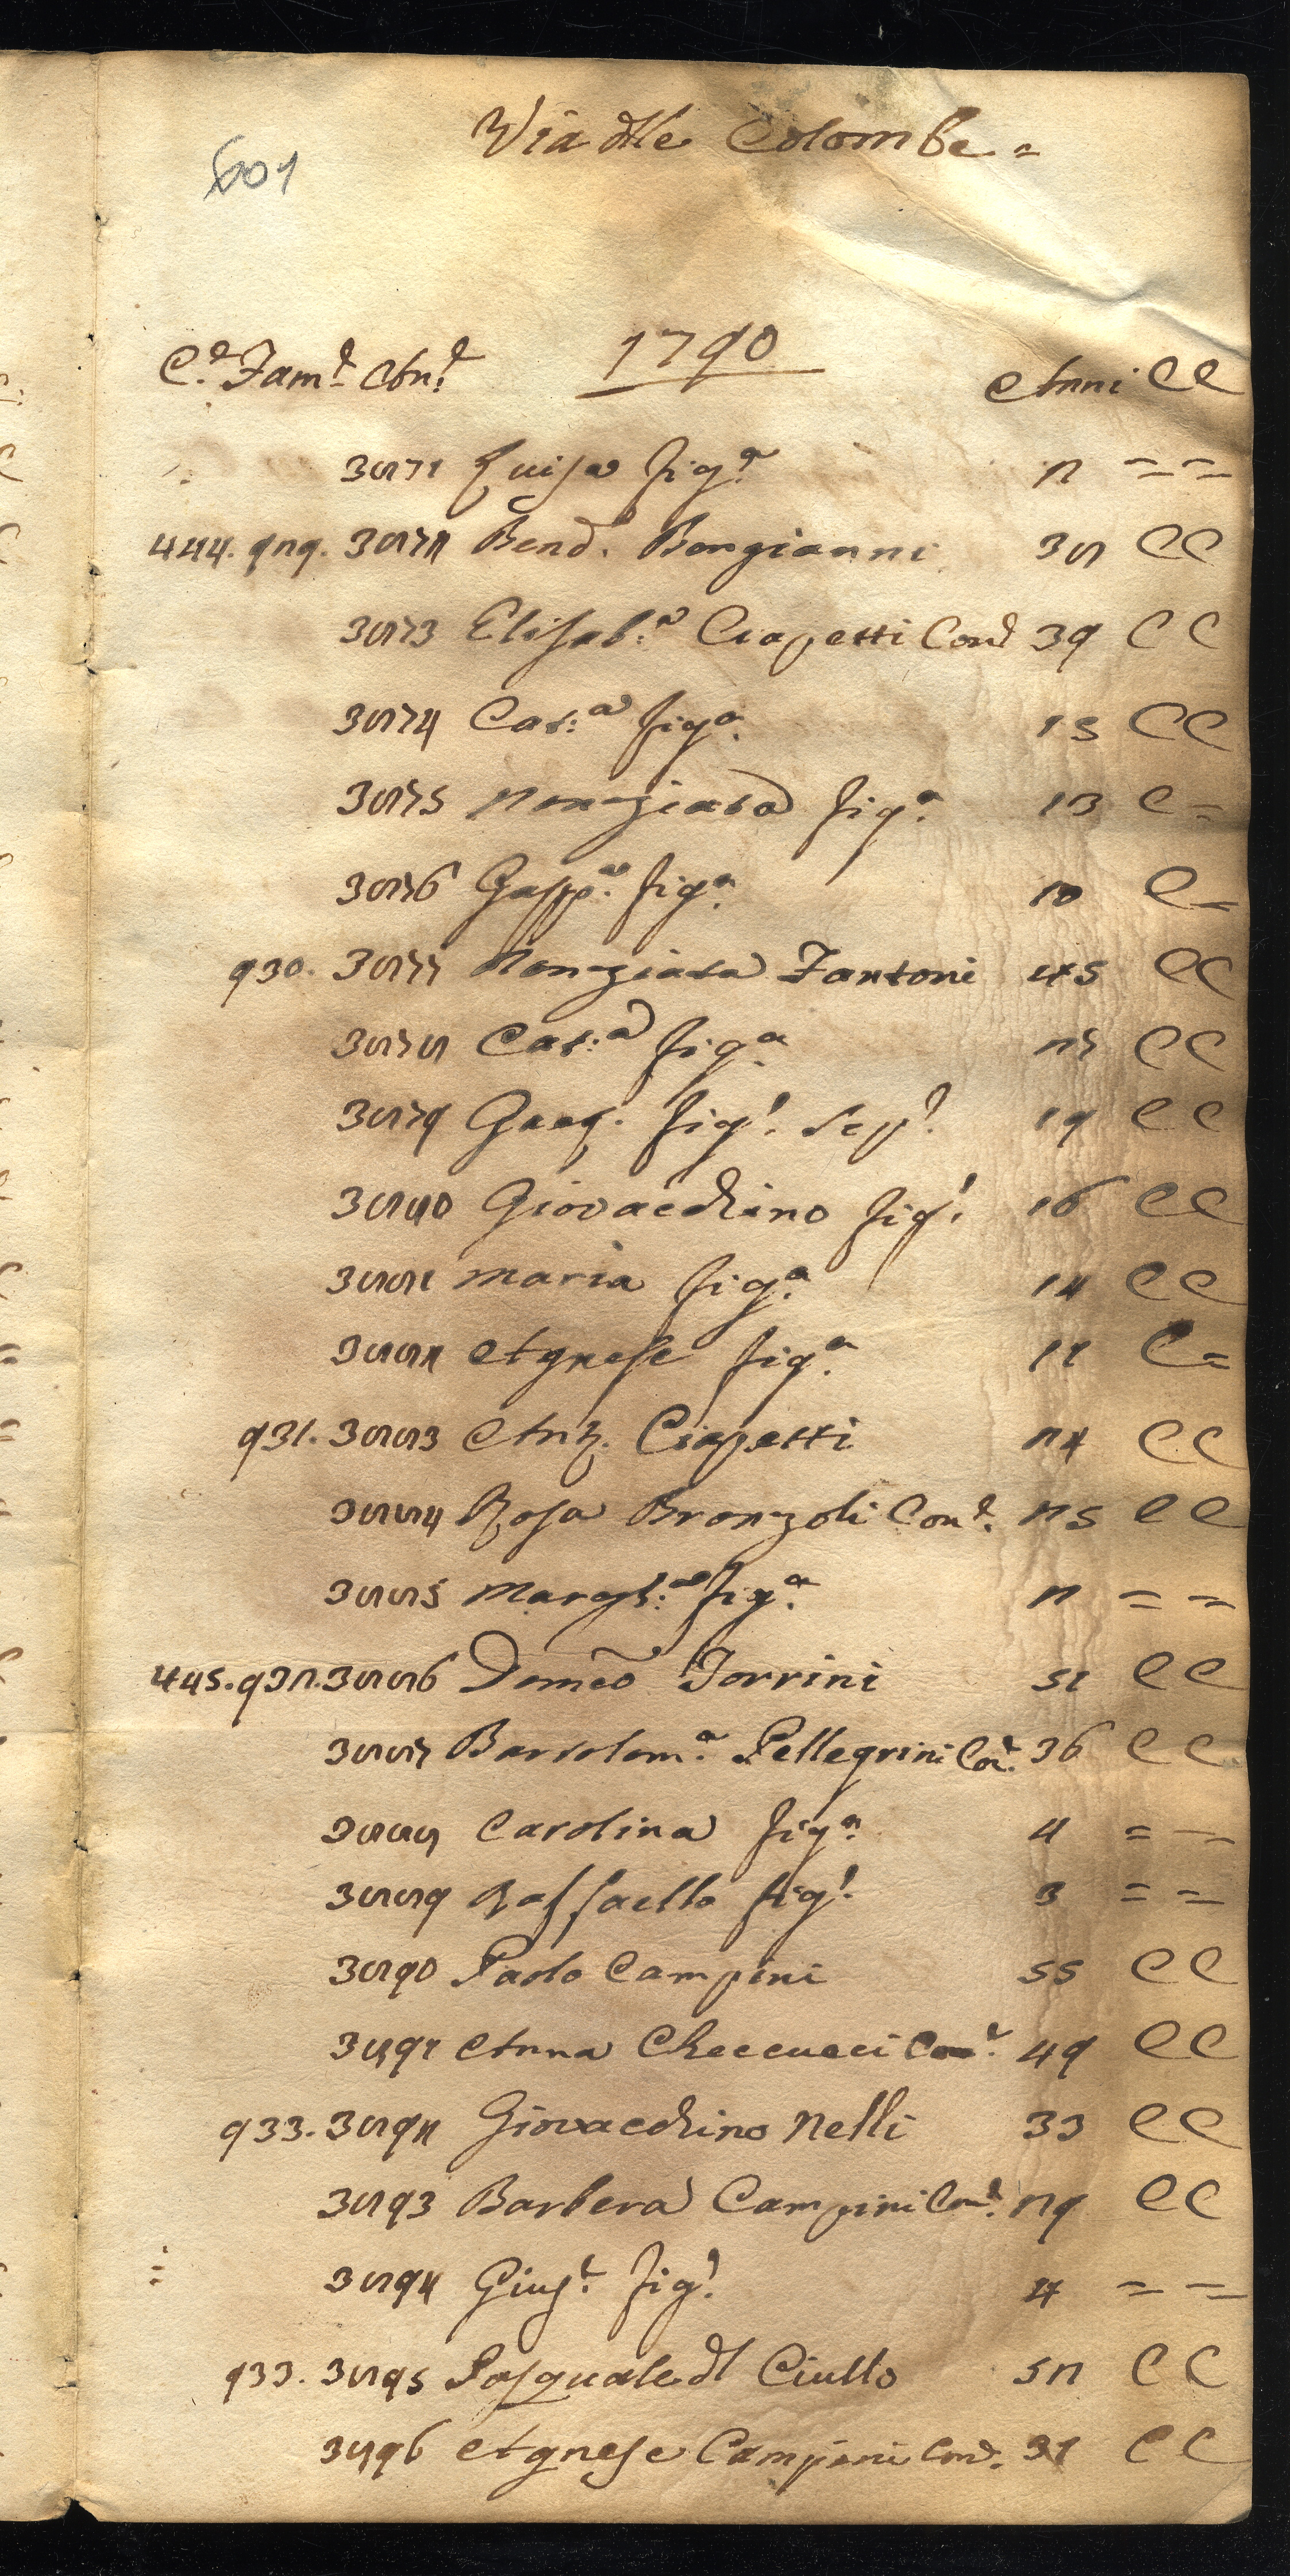 601
Via dlle Colombe =
1790
C.e Fam.e An.e Anni CC
3871 Luisa fig.a 2 = =
444. 929. 3872 Bend. Bongianni 38 CC
3873 Elisab.a Ciapetti Con.e 39 CC
3874 Cat.a fig.a 15 CC
3875 Nonziata fig.a 13 C =
3876 Gasp.a fig.a 10 C =
930. 3877 Nonziata Fantoni 45 CC
3878 Cat.a fig.a 27 CC
3879 Gaet. fig.l 19 CC
3880 Giovacchino fig.l 16 CC
3881 Maria fig.a 14 CC
3882 Agnese fig.a 11 C =
931. 3883 Ant. Ciapetti 24 CC
3884 Rosa Bronzoli Con.e 25 CC
3885 Margh.a fig.a 2 = =
445. 932. 3886 Domeo Torrini 51 CC
3887 Bartolom.a Pellegrini Co.e 36 CC
3888 Carolina fig.a 4 = =
3889 Raffaello fig.l 3 = =
3890 Paolo Campini 55 CC
3891 Anna Checcucci Con.e 49 CC
933. 3892 Giovacchino Nelli 33 CC
3893 Barbera Campini Con.e 29 CC
3894 Gius.e fig.l 4 = =
933. 3895 Pasquale dl Ciullo 52 CC
3896 Agnese Campini Con.e 31 CC